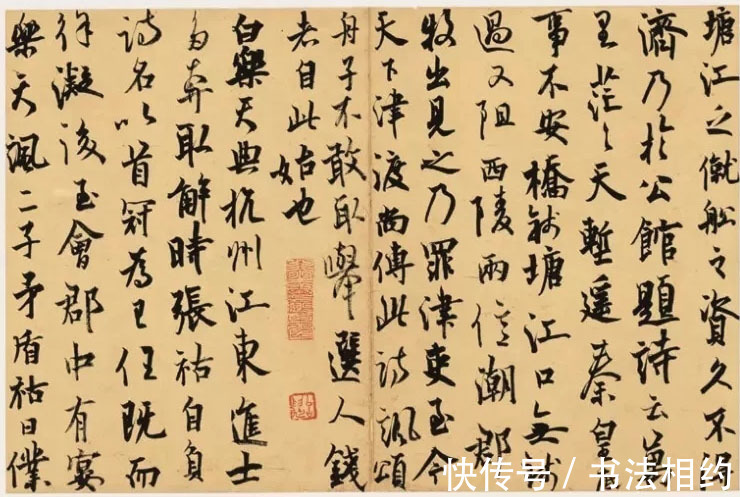 塘江乏僦船之資久不得
濟乃於公館題詩云萬
里茫〻天塹遥秦皇底
事不安橋錢塘江口無錢
過又阻西陵兩信潮郡
牧出見之乃罪津吏至今
天下津渡尚傳此詩諷頌
舟子不敢取舉選人錢
者自此始也
白樂天典杭州江東進士
多奔取解時張祜自負
詩名以首冠為己任既而
徐凝後至會郡中有宴
樂天諷二子矛盾祜曰僕
快传号 / 书法相约